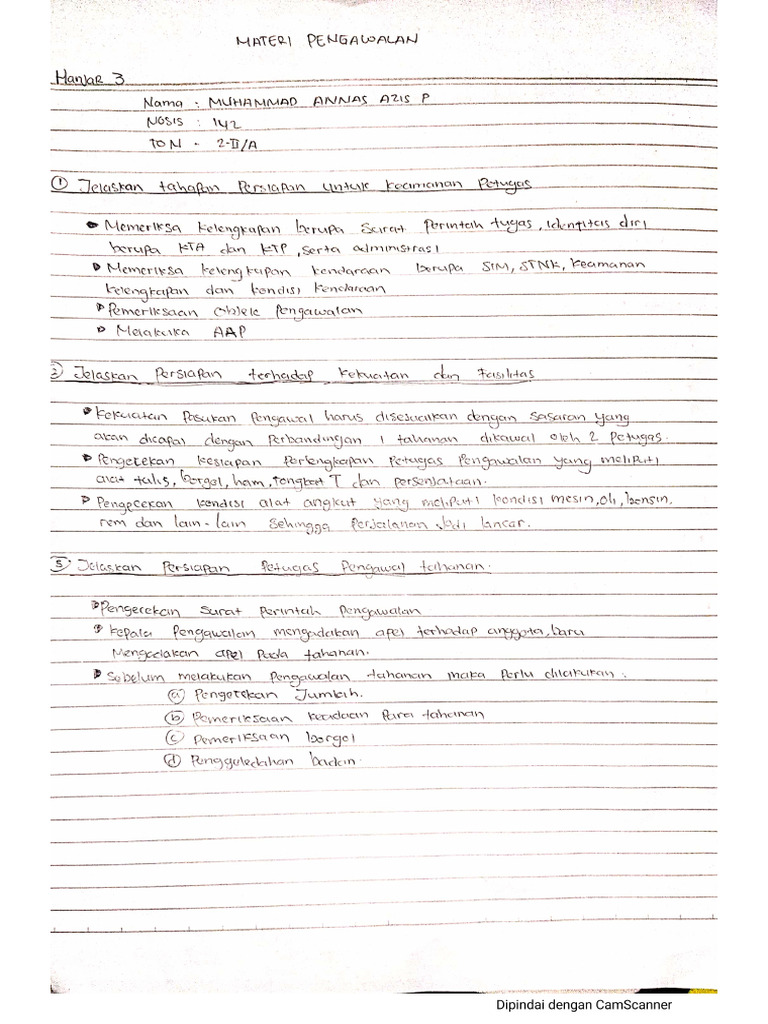 MATERI PENGAWALAN
Hanjar 3
Nama : MUHAMMAD ANNAS AZIS P
NOSIS : 142
TON - 2-II/A
① Jelaskan tahapan Persiapan untuk keamanan Petugas
• Memeriksa kelengkapan berupa Surat perintah tugas, identitas diri
berupa KTA dan KTP, serta administrasi
• Memeriksa kelengkapan kendaraan berupa SIM, STNK, keamanan
kelengkapan dan kondisi kendaraan
• Pemeriksaan Objek Pengawalan
• Melakuka AAP
② Jelaskan Persiapan terhadap kekuatan dan Fasilitas
• Kekuatan Pasukan Pengawal harus disesuaikan dengan sasaran yang
akan dicapai dengan Perbandingan 1 tahanan dikawal oleh 2 Petugas.
• Pengecekan kesiapan Perlengkapan Petugas Pengawalan yang meliputi
alat tulis, borgol, ham, tongkat T dan persenjataan.
• Pengecekan kondisi alat angkut yang meliputi kondisi mesin, oli, bensin,
rem dan lain-lain sehingga Perjalanan Jadi lancar.
Jelaskan Persiapan Petugas Pengawal tahanan.
• Pengecekan Surat Perintah Pengawalan
• Kepala Pengawalan mengadakan apel terhadap anggota, baru
Mengadakan apel Pada tahanan.
• Sebelum melakukan Pengawalan tahanan maka Perlu dilakukan :
ⓐ Pengecekan Jumlah.
ⓑ Pemeriksaan keadaan Para tahanan
ⓒ Pemeriksaan borgol
ⓓ Penggeledahan badan.
Dipindai dengan CamScanner